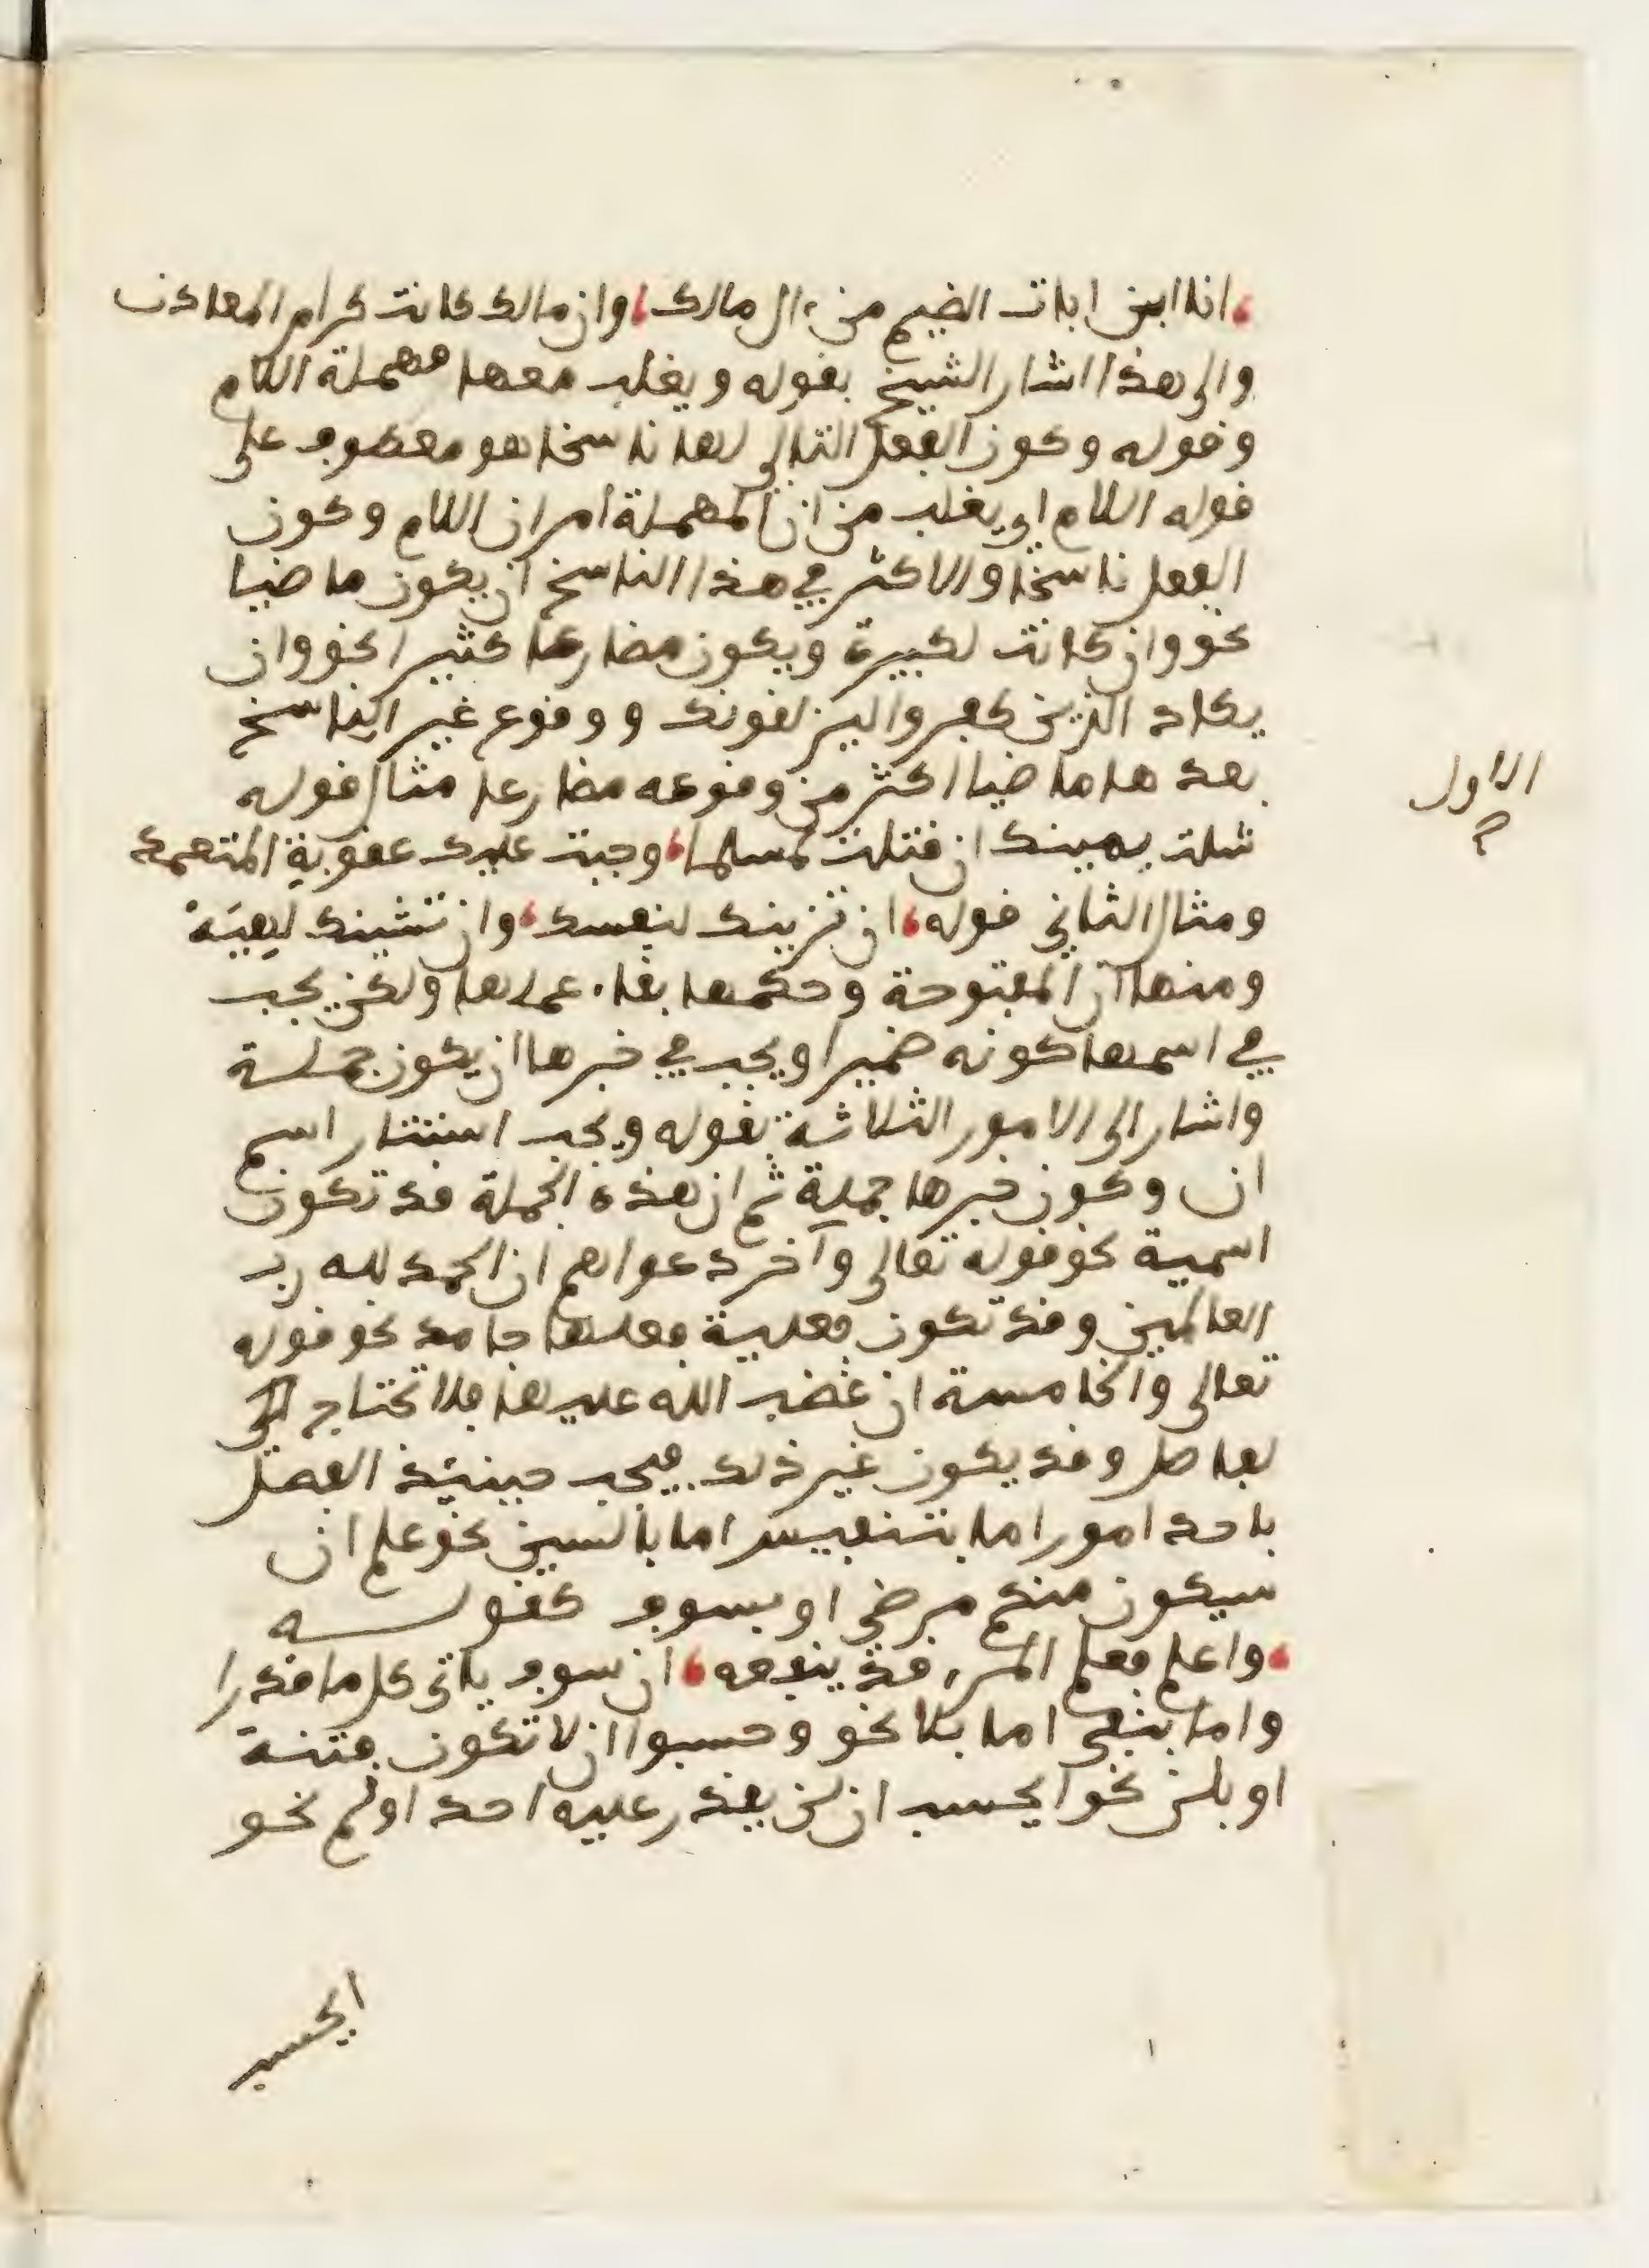 انا ابن اباة الضيم من ءال مالك وان مالك كانت كرام المعادن
والى هذا اشار الشيخ بقوله ويغلب معها مهملة اللام
وقوله وكون الفعل التالى لها ناسخا هو معطوف على
قوله اللام اي يغلب من ان المهملة امران اللام وكون
الفعل ناسخا والاكثر في هذا الناسخ ان يكون ماضيا
نحو وان كانت لكبيرة ويكون مضارعا كثيرا نحو وان
يكاد الذين كفروا ليزلقونك ووقوع غير الناسخ
بعدها ماضيا اكثر من وقوعه مضارعا مثال قوله
الاول
شلت يمينك ان قتلت لمسلما وجبت عليك عقوبة المتعمد
ومثال الثاني قوله ان تزينك لنفسك وان تشينك لهيه
ومنها ان المفتوحة وحكمها بقاء عملها ولكن يجب
في اسمها كونه ضميرا ويجب في خبرها ان يكون جملة
واشار الى الامور الثلاثة بقوله ويجب استتار اسم
ان وكون خبرها جملة ثم ان هذه الجملة قد تكون
اسمية نحو قوله تعالى وآخر دعواهم ان الحمد لله رب
العالمين وقد تكون فعلية فعلها جامد نحو قوله
تعالى والخامسة ان غضب الله عليها فلا تحتاج الى
لفاصل وقد يكون غير ذلك فيجب حينئذ الفصل
باحد امور اما بتنفيس اما بالسين نحو علم ان
سيكون منكم مرضى او بسوف كقوله
واعلم فعلم المرء قد ينفعه ان سوف ياتى كل ما قدرا
واما بنفي اما بلا نحو وحسبوا ان لا تكون فتنة
او بلن نحو ايحسب ان لن يقدر عليه احد او لم نحو
ايحسب